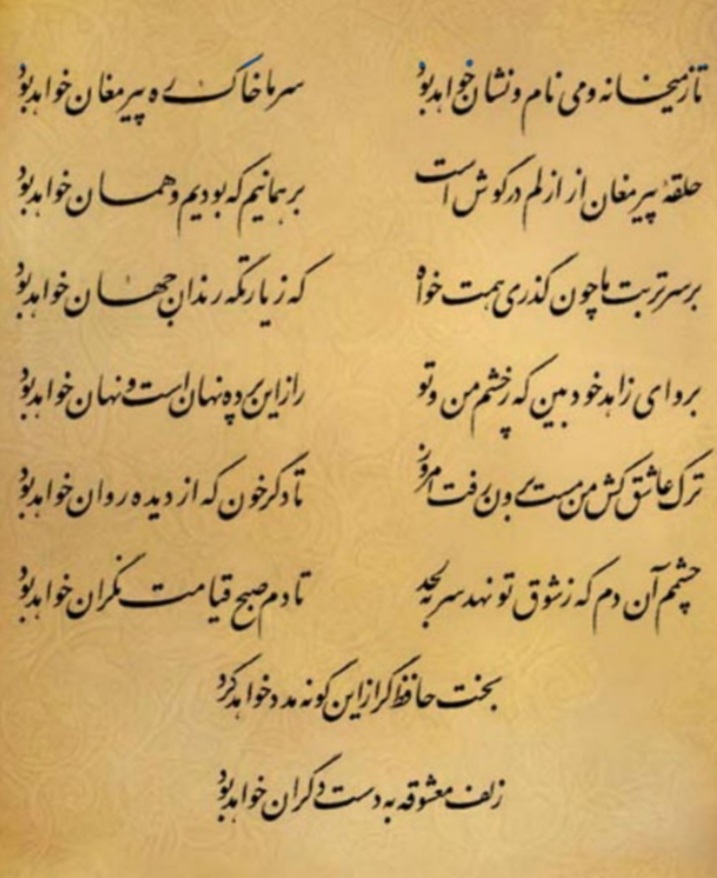 تا ز میخانه و می نام و نشان خواهد بود
سر ما خاک ره پیر مغان خواهد بود
حلقهٔ پیر مغان از ازلم در گوش است
بر همانیم که بودیم و همان خواهد بود
بر سر تربت ما چون گذری همت خواه
که زیارتگه رندان جهان خواهد بود
برو ای زاهد خودبین که ز چشم من و تو
راز این پرده نهان است و نهان خواهد بود
ترک عاشق کش من مست برون رفت امروز
تا دگر خون که از دیده روان خواهد بود
چشمم آن دم که ز شوق تو نهد سر به لحد
تا دم صبح قیامت نگران خواهد بود
بخت حافظ گر از این گونه مدد خواهد کرد
زلف معشوقه به دست دگران خواهد بود